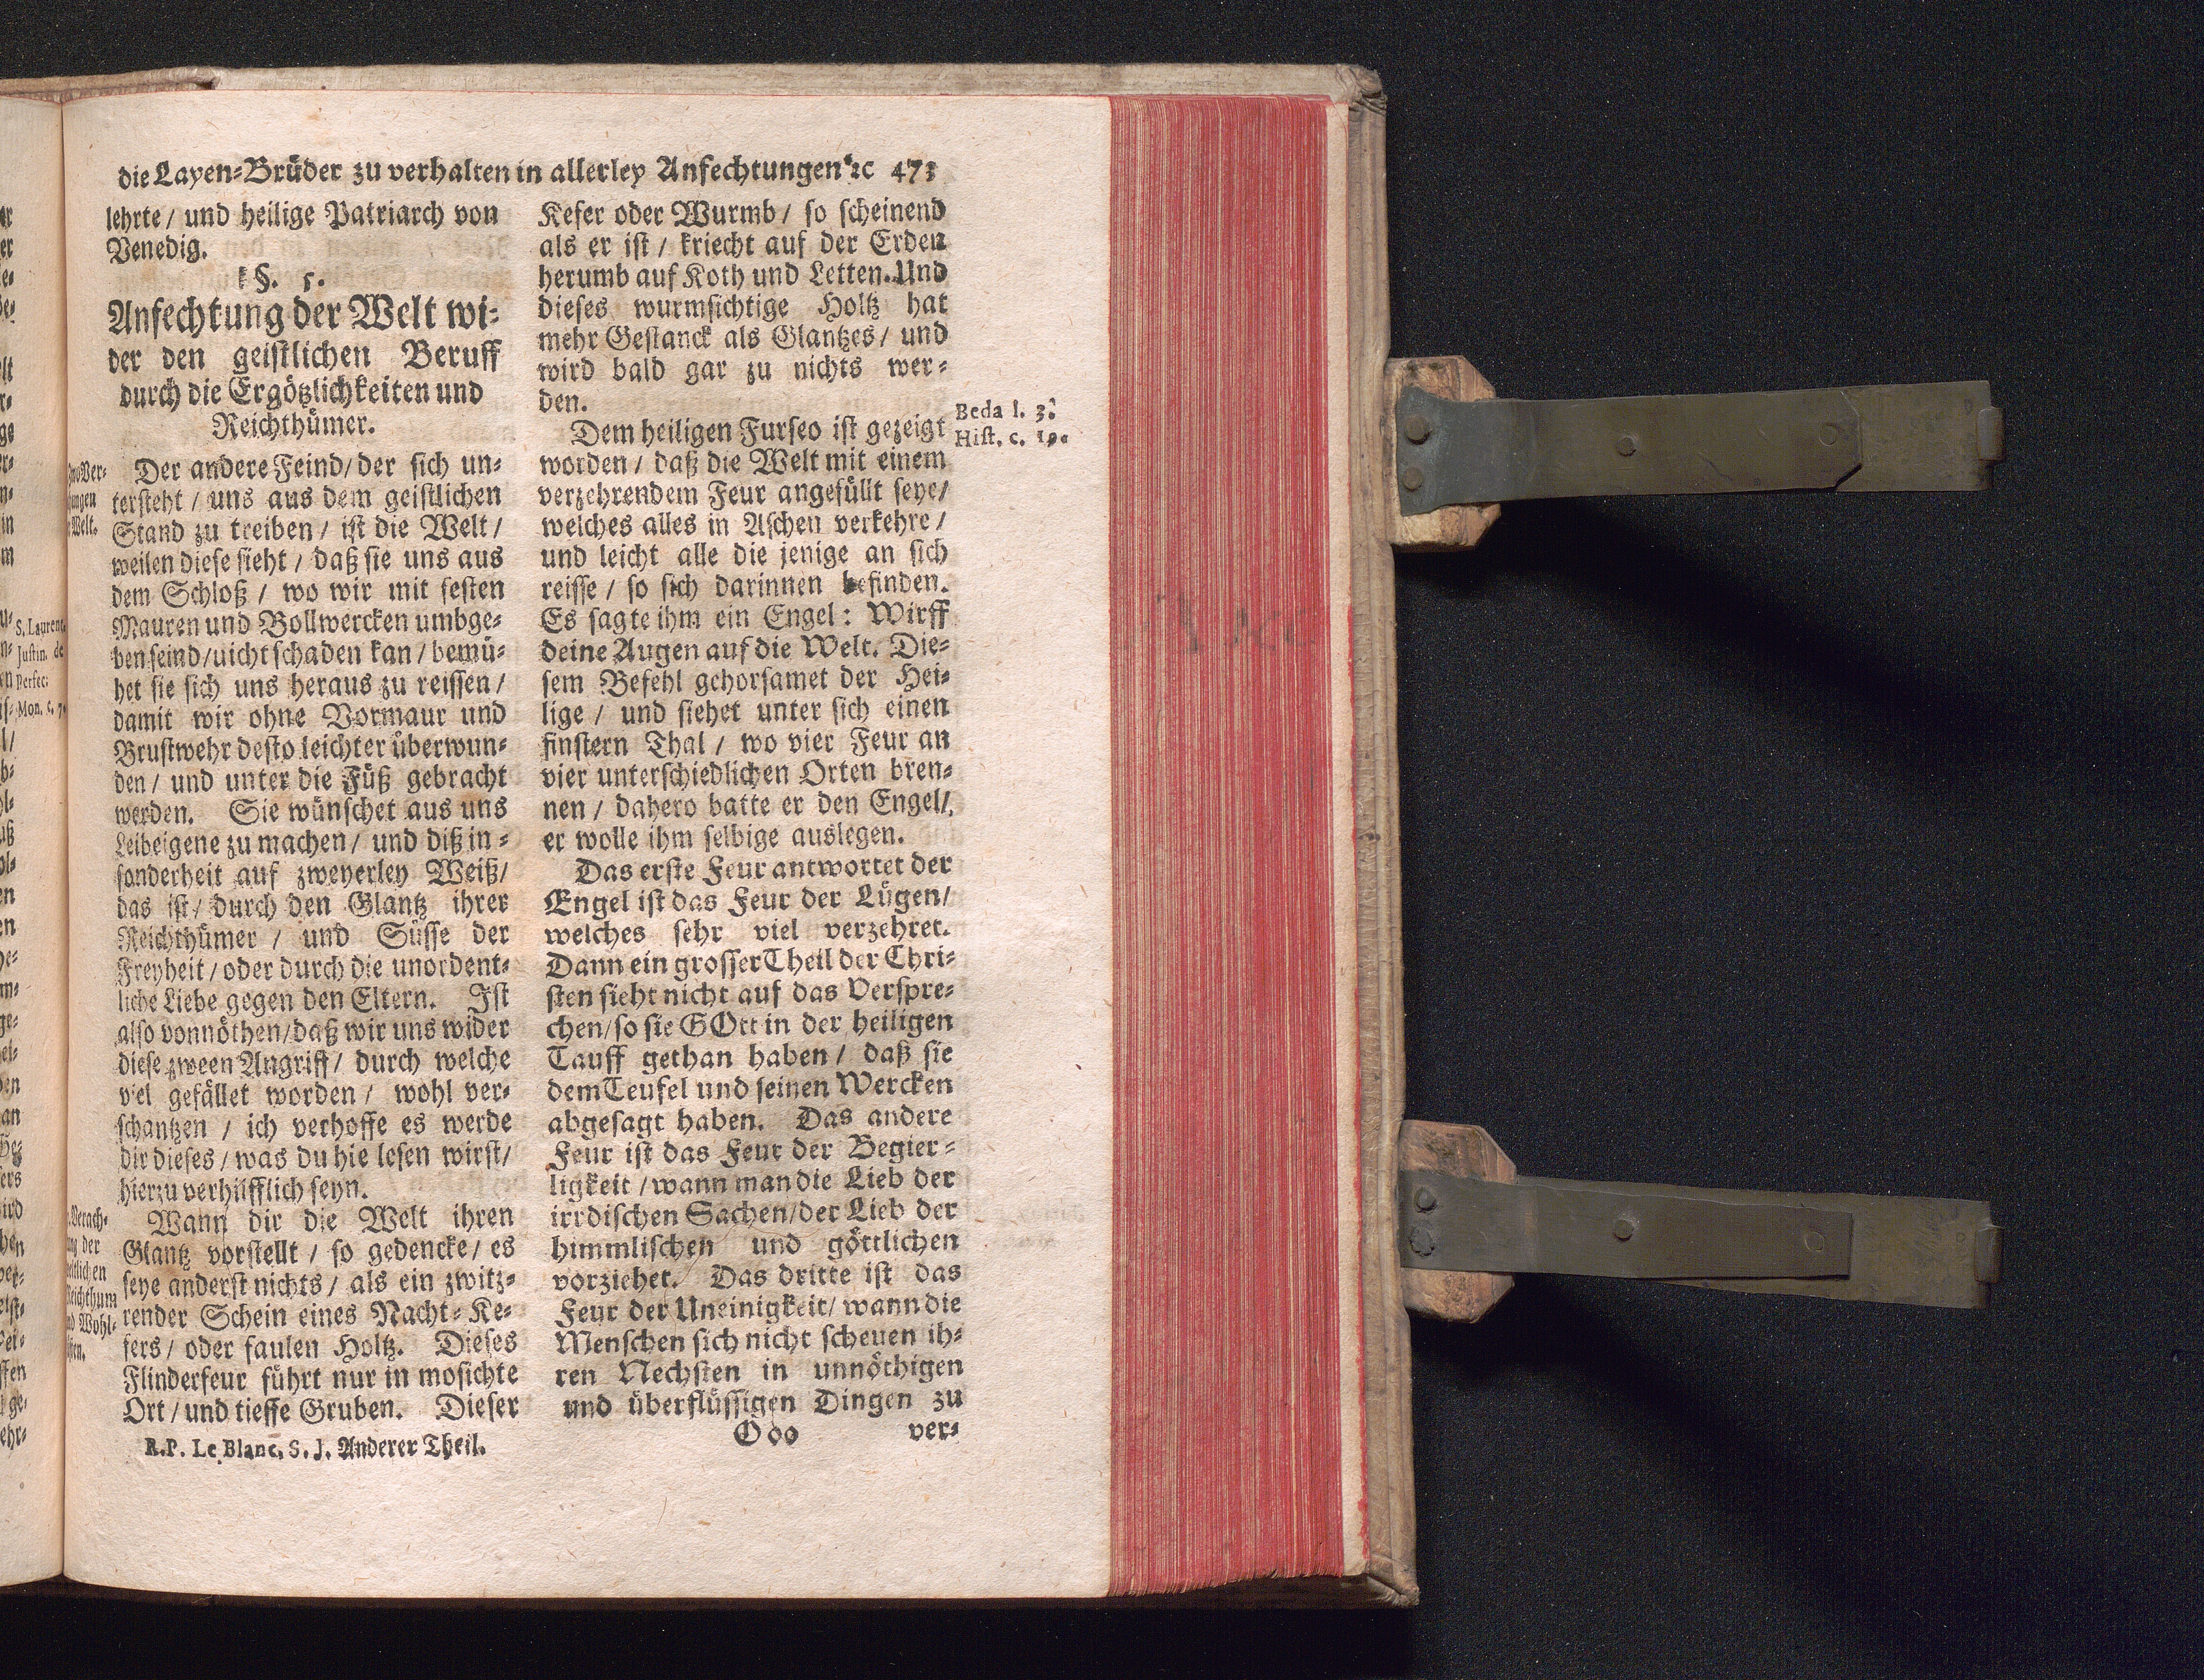 die Layen-Brüder zu verhalten in allerley Anfechtungen ꝛc 473
lehrte / und heilige Patriarch von
Venedig.
§. 5.
Anfechtung der Welt wi-
der den geistlichen Beruff
durch die Ergötzlichkeiten und
Reichthümer.
Der andere Feind / der sich un-
tersteht / uns aus dem geistlichen
Stand zu treiben / ist die Welt /
weilen diese sieht / daß sie uns aus
dem Schloß / wo wir mit festen
Mauren und Bollwercken umbge-
ben seind / uicht schaden kan / bemü-
het sie sich uns heraus zu reissen /
damit wir ohne Vormaur und
Brustwehr desto leichter überwun-
den / und unter die Füß gebracht
werden. Sie wünschet aus uns
Leibeigene zu machen / und diß in-
sonderheit auf zweyerley Weiß /
das ist / durch den Glantz ihrer
Reichthümer / und Süsse der
Freyheit / oder durch die unordent-
liche Liebe gegen den Eltern. Ist
also vonnöthen / daß wir uns wider
diese zween Angriff / durch welche
viel gefället worden / wohl ver-
schantzen / ich verhoffe es werde
dir dieses / was du hie lesen wirst /
hierzu verhilfflich seyn.
Wann dir die Welt ihren
Glantz vorstellt / so gedencke / es
seye anderst nichts / als ein zwitz-
render Schein eines Nacht-Ke-
fers / oder faulen Holtz. Dieses
Flinderfeur führt nur in mosichte
Ort / und tieffe Gruben. Dieser
R. P. Le Blanc, S. J. Anderer Theil.
S. Laurent.
Justin. de
perfec.
Mon. c. 7.
Kefer oder Wurmb / so scheinend
als er ist / kriecht auf der Erden
herumb auf Koth und Letten. Und
dieses wurmsichtige Holtz hat
mehr Gestanck als Glantzes / und
wird bald gar zu nichts wer-
den.
Dem heiligen Furseo ist gezeigt
worden / daß die Welt mit einem
verzehrendem Feur angefüllt seye /
welches alles in Aschen verkehre /
und leicht alle die jenige an sich
reisse / so sich darinnen befinden.
Es sagte ihm ein Engel: Wirff
deine Augen auf die Welt. Die-
sem Befehl gehorsamet der Hei-
lige / und siehet unter sich einen
finstern Thal / wo vier Feur an
vier unterschiedlichen Orten bren-
nen / dahero batte er den Engel /
er wolle ihm selbige auslegen.
Das erste Feur antwortet der
Engel ist das Feur der Lügen /
welches sehr viel verzehret.
Dann ein grosser Theil der Chri-
sten sieht nicht auf das Verspre-
chen / so sie GOtt in der heiligen
Tauff gethan haben / daß sie
dem Teufel und seinen Wercken
abgesagt haben. Das andere
Feur ist das Feur der Begier-
ligkeit / wann man die Lieb der
irrdischen Sachen / der Lieb der
himmlischen und göttlichen
vorziehet. Das dritte ist das
Feur der Uneinigkeit / wann die
Menschen sich nicht scheuen ih-
ren Nechsten in unnöthigen
und überflüssigen Dingen zu
Ooo ver-
Beda l. 3.
Hist. c. 19.